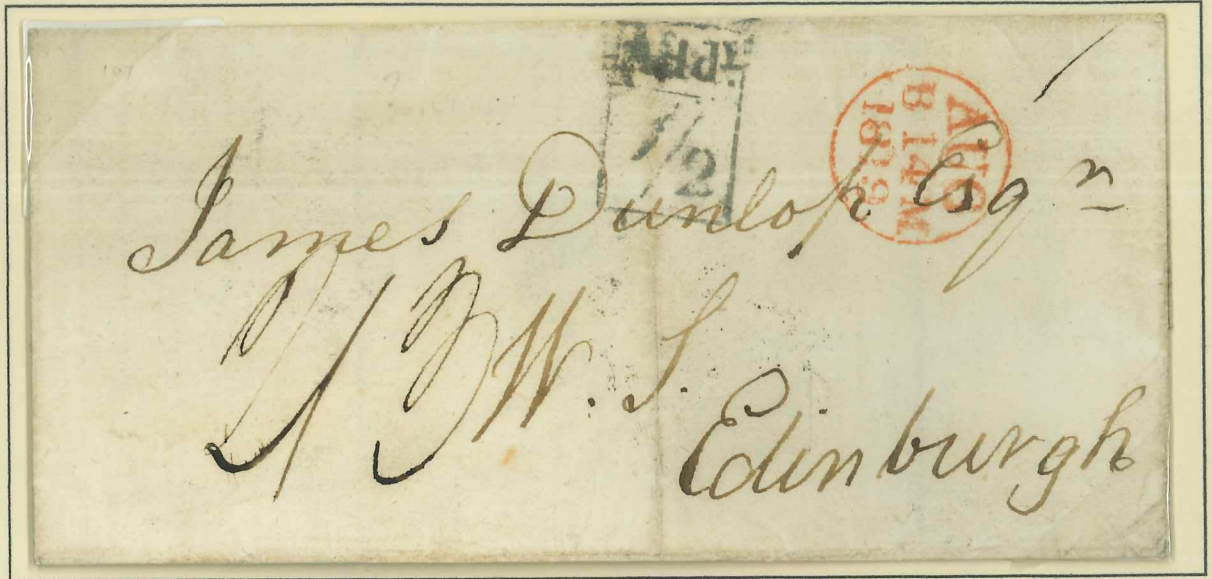 1/2
AUG
B 14 M
1839
James Dunlop Esqr
2/3 W. S.
Edinburgh